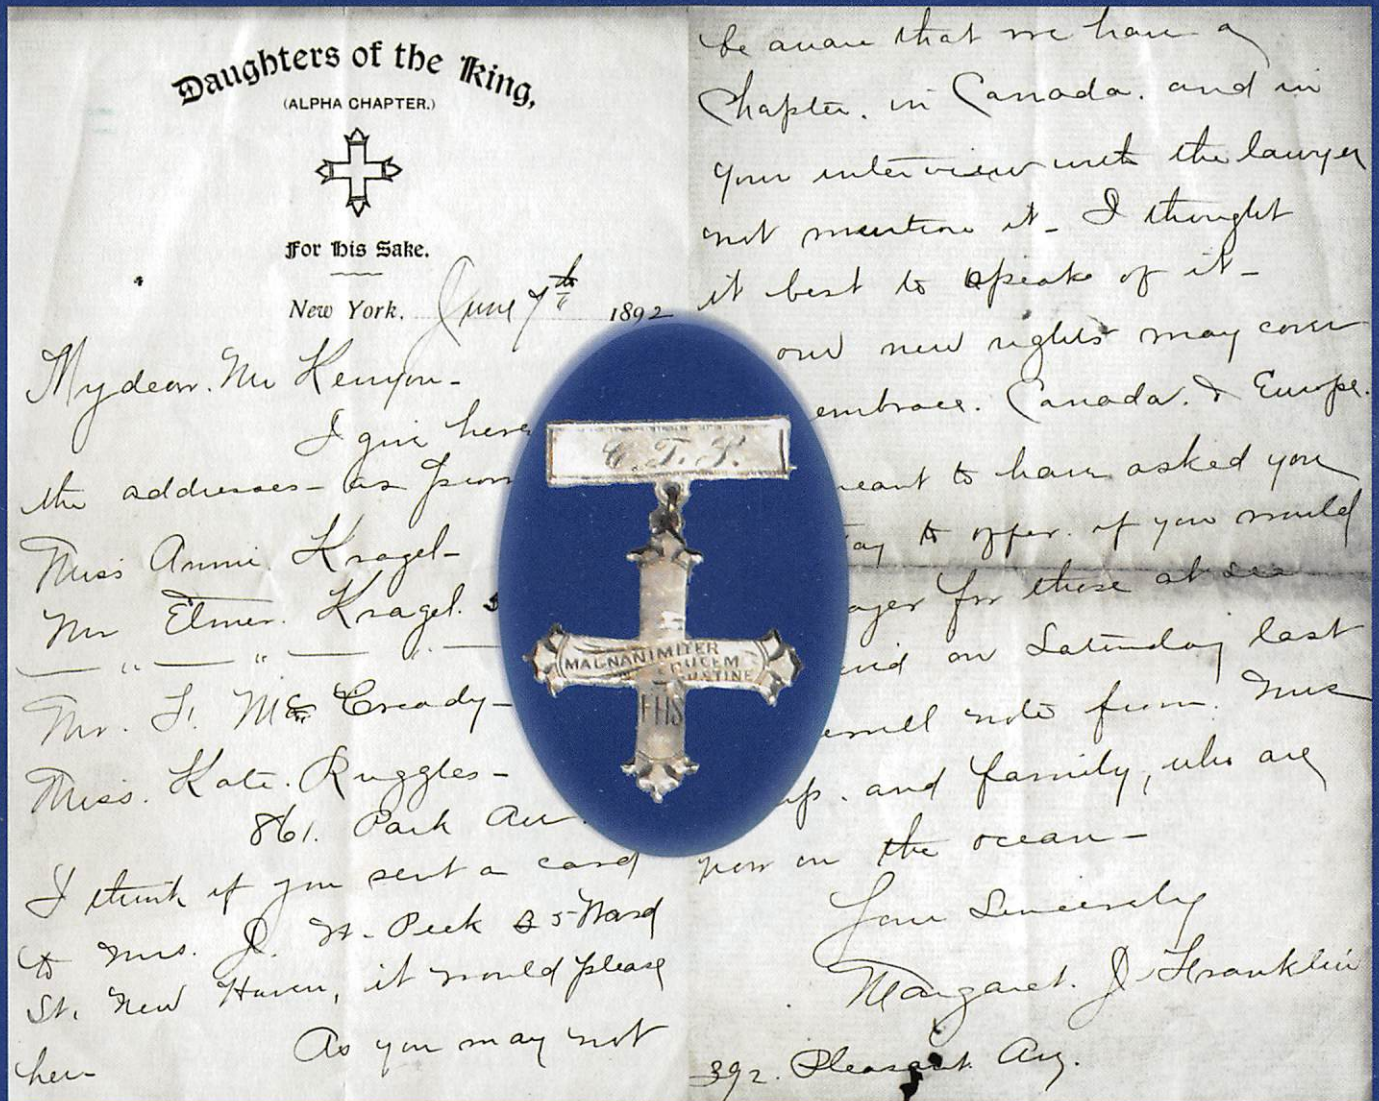 Daughters of the King,
(ALPHA CHAPTER.)
For His Sake.
New York, June 7th 1892
My dear Mr Kenyon-
I give here
the addresses- as
Miss Annie Kragel-
Mr Elmer Kragel.
— " — " — " —
Mr. F. Mc Cready-
Miss. Kate. Ruggles-
861. Park Av
I think if you sent a card
to Mrs. J. H. Peck 35 Ward
St. New Haven, it would please
her-
As you may not
be aware that we have a
Chapter. in Canada. and in
your interview with the lawyer
not mention it- I thought
it best to speak of it-
our new rights may cover
embrace. Canada. & Europe.
meant to have asked you
to offer. if you would
ayer for those at sea
on Saturday last
note from. Mrs
and family, who are
now on the ocean-
Your Sincerely
Margaret. J. Franklin
392. Pleasant Av.
C.T.P.
MAGNANIMITER
CRUCEM
SUSTINE
FHS